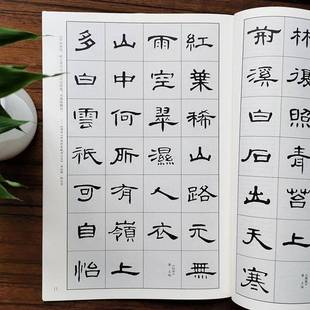 林復照青苔上
荊溪白石出天寒
紅葉稀山路元無
雨空翠濕人衣
山中何所有嶺上
多白雲祇可自怡
11